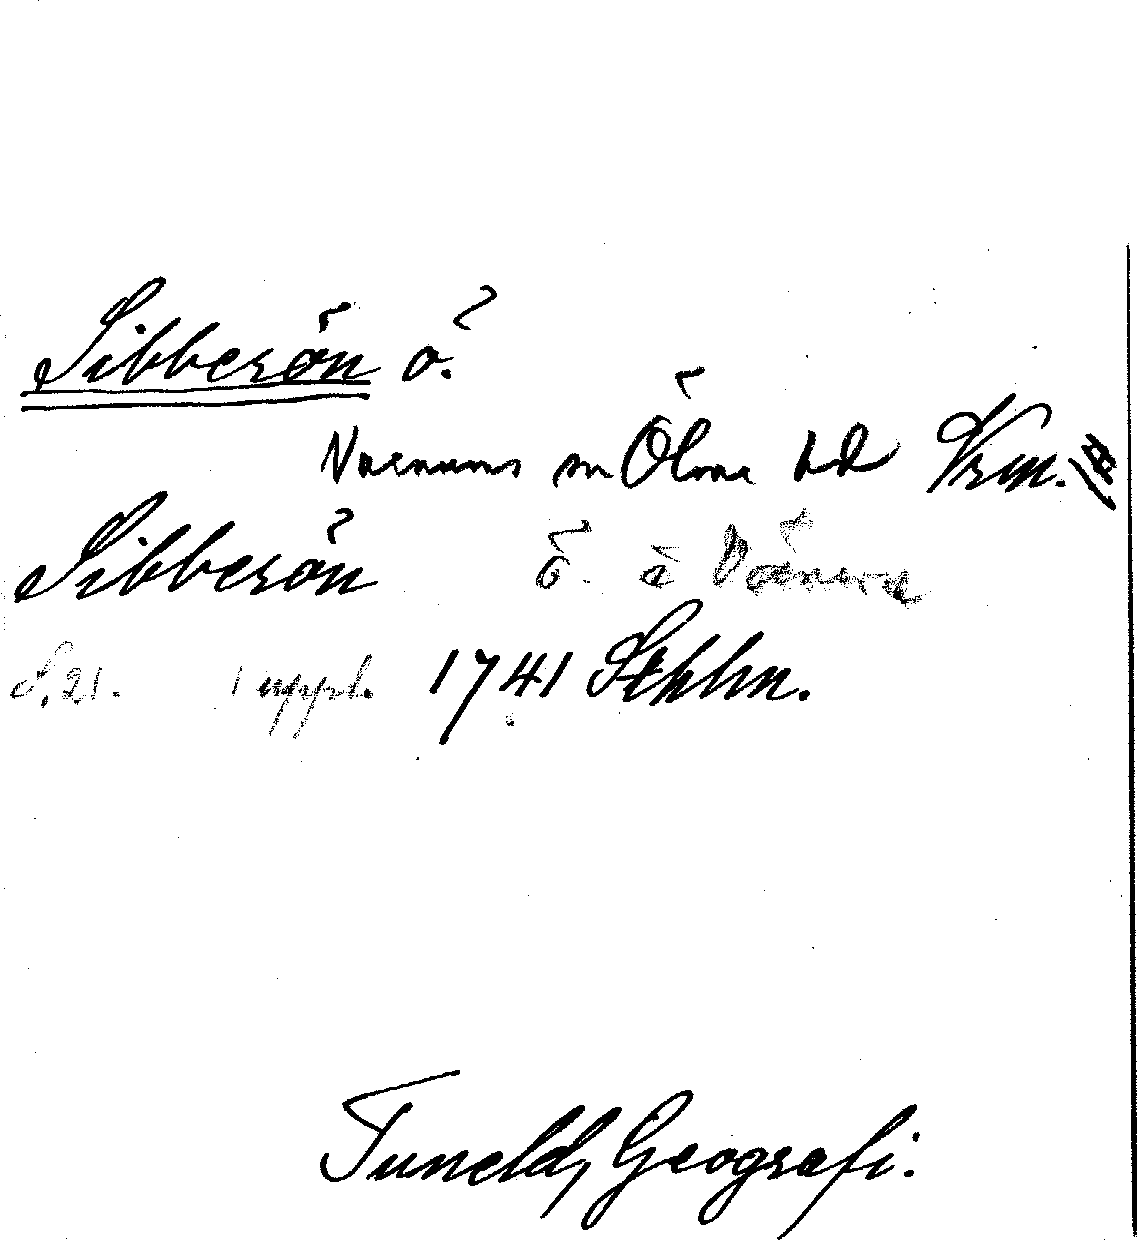 Sibberön ö.
Varnums sn Ölme hd Vrm.
Sibberön ö. i Vänern
S. 21. 1 uppl. 1741 Sthlm.
Tuneld, Geografi.